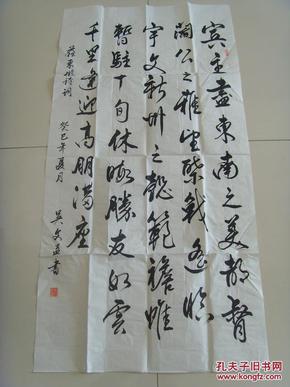 宾主尽东南之美都督
阎公之雅望棨戟遥临
宇文新州之懿范襜帷
暂驻十旬休暇胜友如云
千里逢迎高朋满座
苏东坡诗词
癸巳年夏月
书
孔夫子旧书网
www.kongfz.com